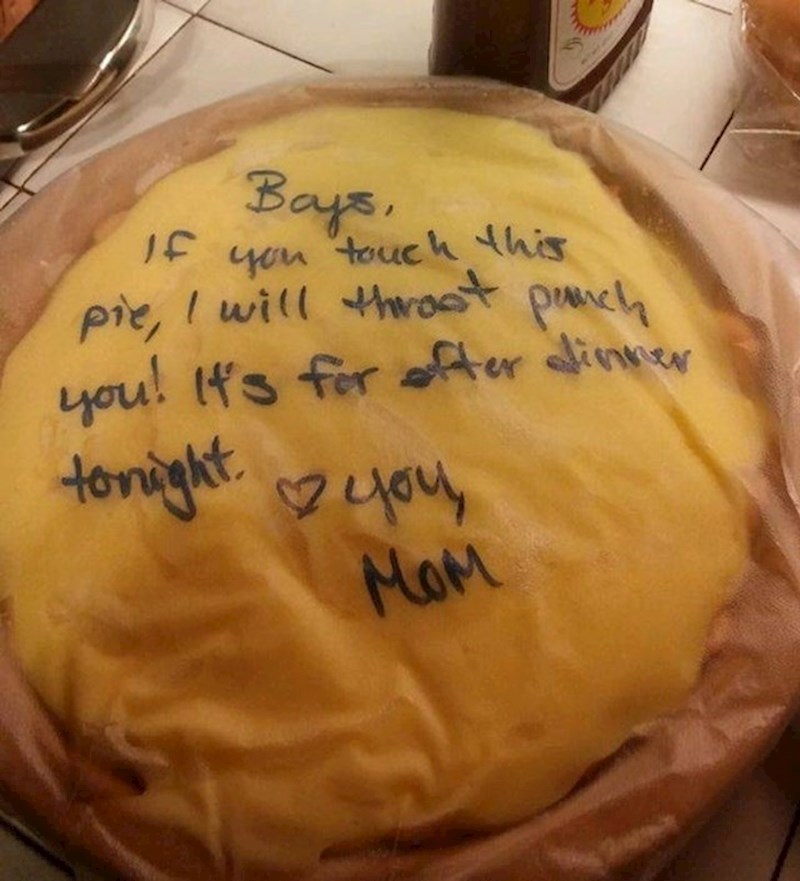 Boys,
If you touch this
pie, I will throat punch
you! It's for after dinner
tonight. ♡ you,
MOM